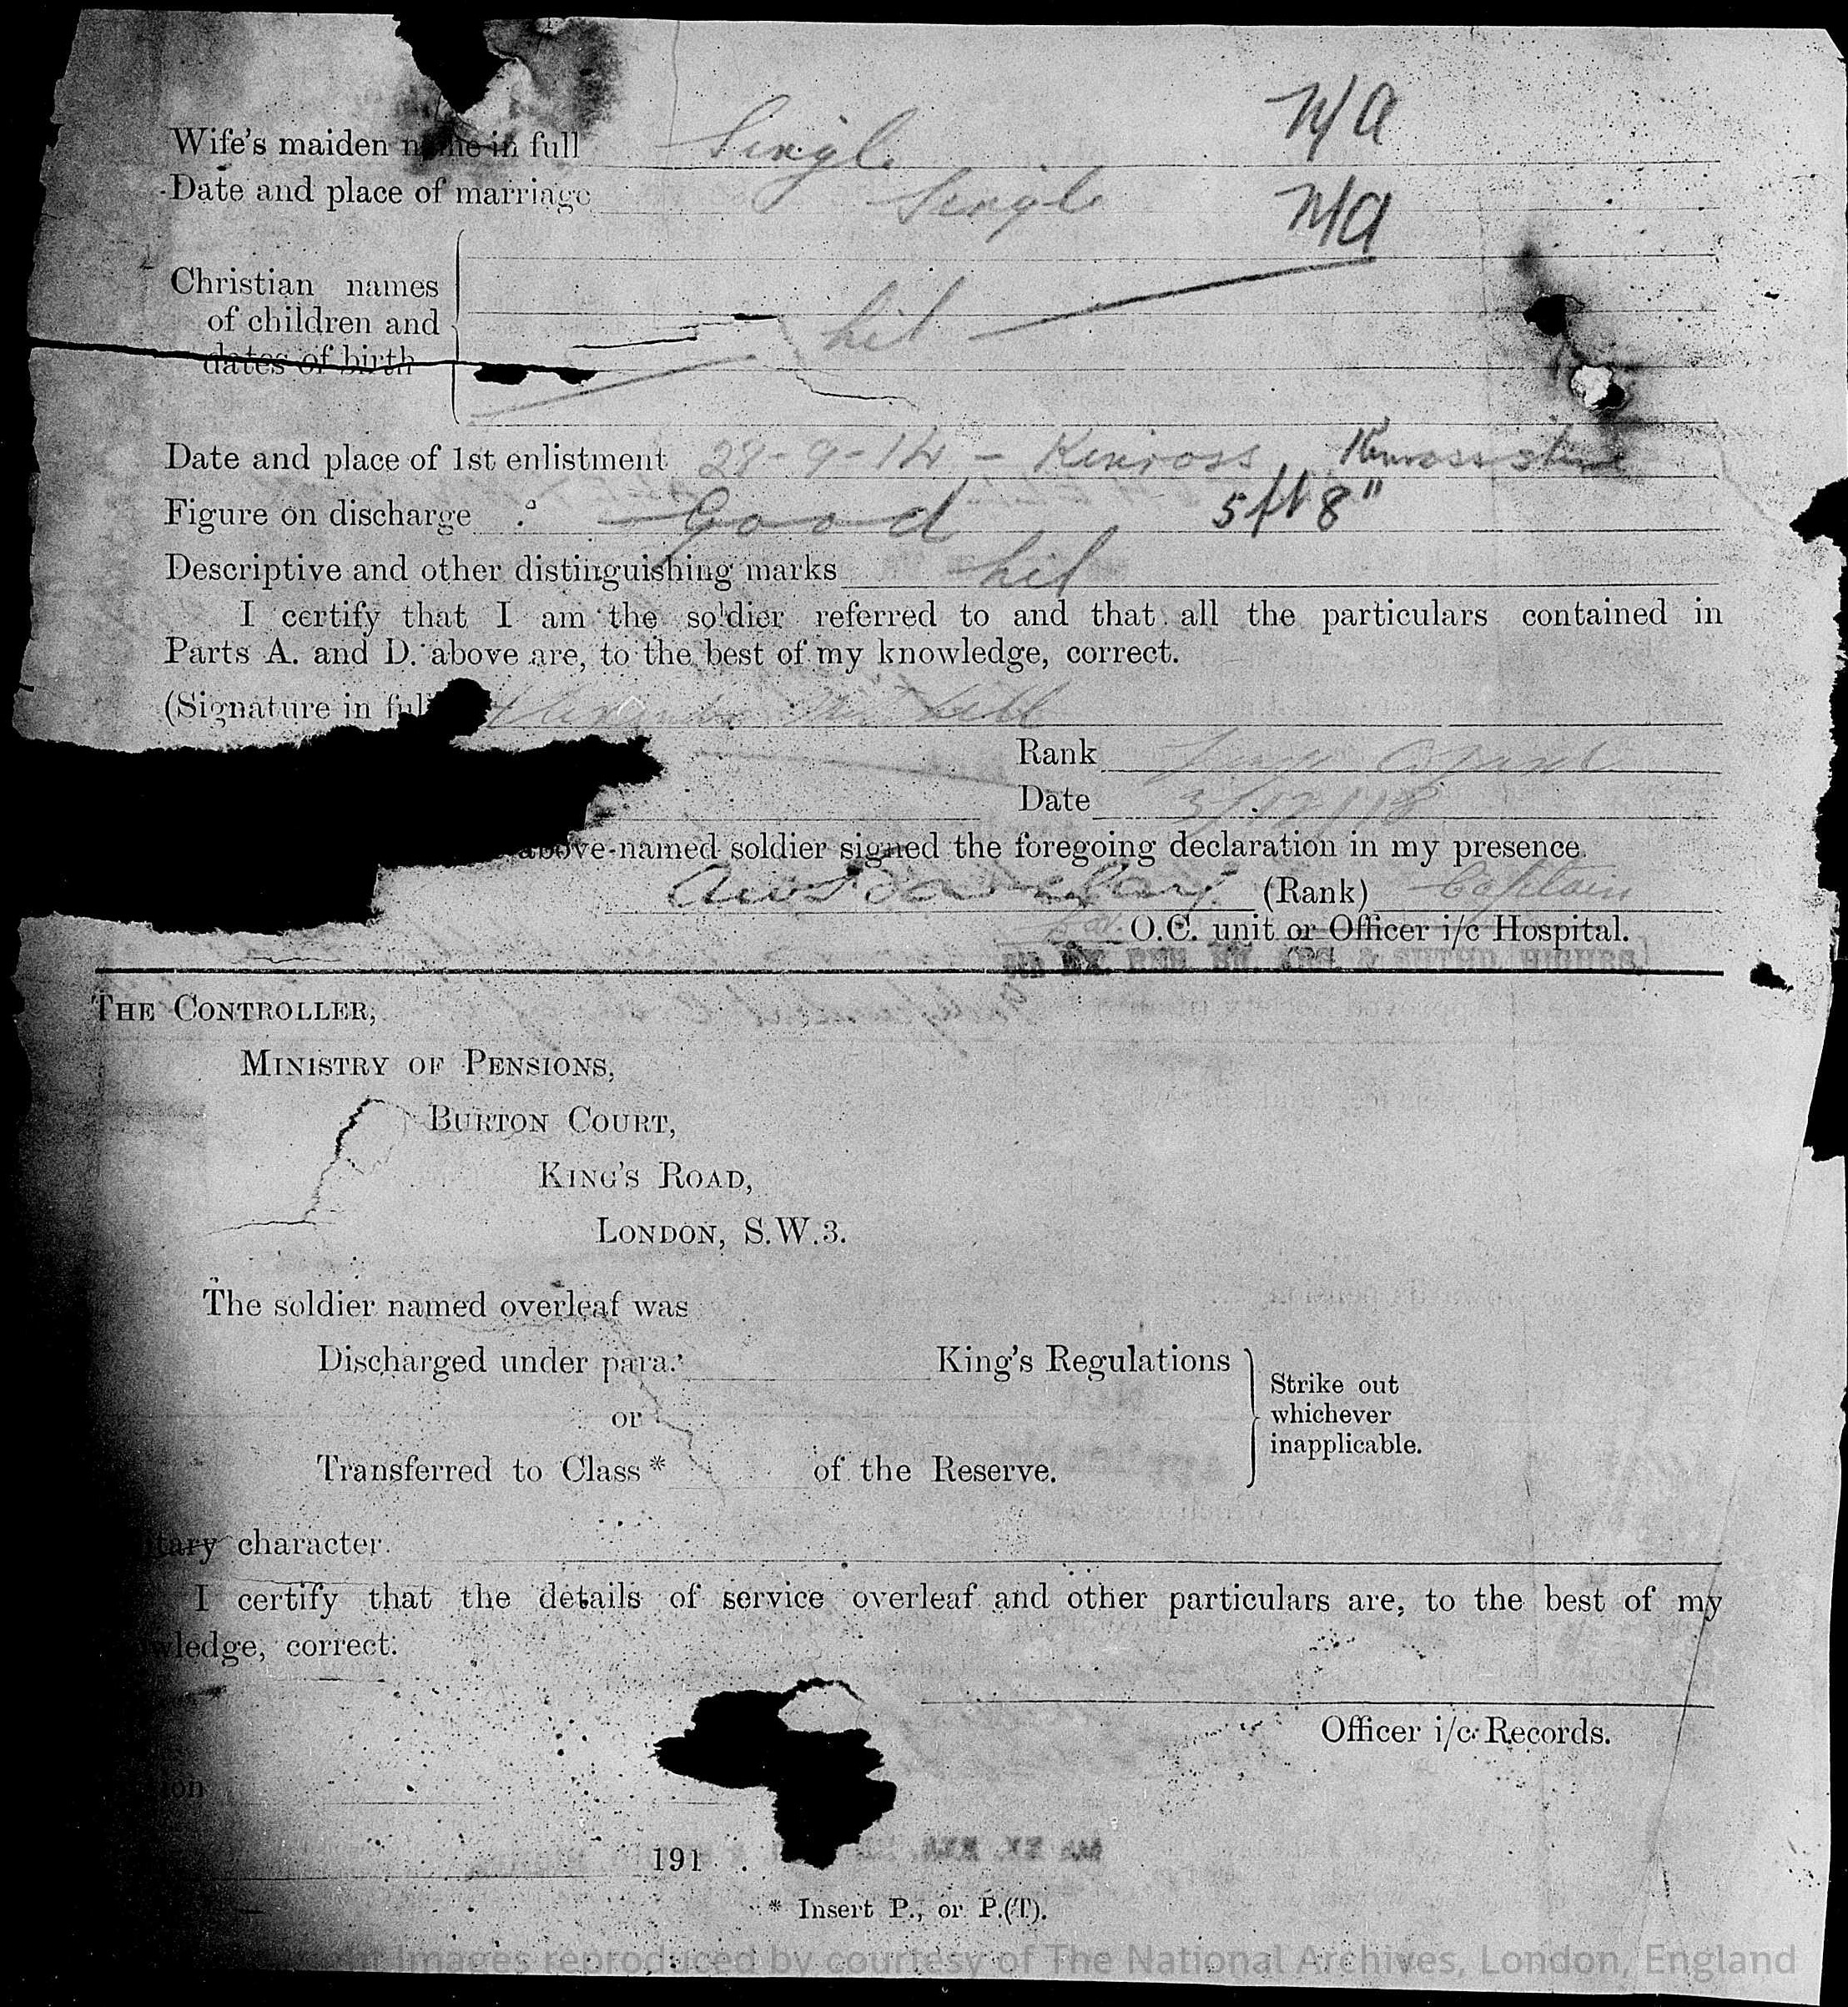 Wife's maiden name in full Single N/A
Date and place of marriage Single N/A
Christian names
of children and
dates of birth
Nil
Date and place of 1st enlistment 28-9-14 - Kinross Kinross shire
Figure on discharge Good 5ft 8"
Descriptive and other distinguishing marks Nil
I certify that I am the soldier referred to and that all the particulars contained in
Parts A. and D. above are, to the best of my knowledge, correct.
(Signature in full Alexander
Rank Lance Corporal
Date 3/12/18
above-named soldier signed the foregoing declaration in my presence.
(Rank) Captain
O.C. unit or Officer i/c Hospital.
THE CONTROLLER,
MINISTRY OF PENSIONS,
BURTON COURT,
KING'S ROAD,
LONDON, S.W.3.
The soldier named overleaf was
Discharged under para. King's Regulations
or
Transferred to Class * of the Reserve.
Strike out
whichever
inapplicable.
tary character.
I certify that the details of service overleaf and other particulars are, to the best of my
wledge, correct.
Officer i/c Records.
ion
191 .
* Insert P., or P.(T).
ht Images reproduced by courtesy of The National Archives, London, England